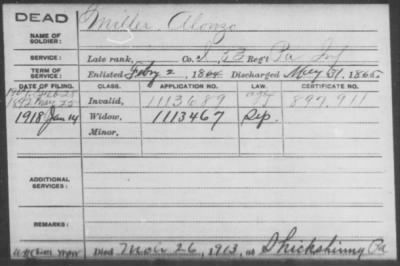 DEAD
Miller, Alonzo
NAME OF SOLDIER:
SERVICE: Late rank, Co. I, 53 Reg't Pa Inf
TERM OF SERVICE: Enlisted Feby 2, 1864 Discharged May 31, 1865.
DATE OF FILING. CLASS. APPLICATION NO. LAW. CERTIFICATE NO.
1892 May 25 Invalid, 1113689 897,911
1918 Jan 14 Widow, 1113467 Sep.
Minor,
ADDITIONAL SERVICES:
REMARKS:
Died Nov 26, 1913, at Shickshinny Pa